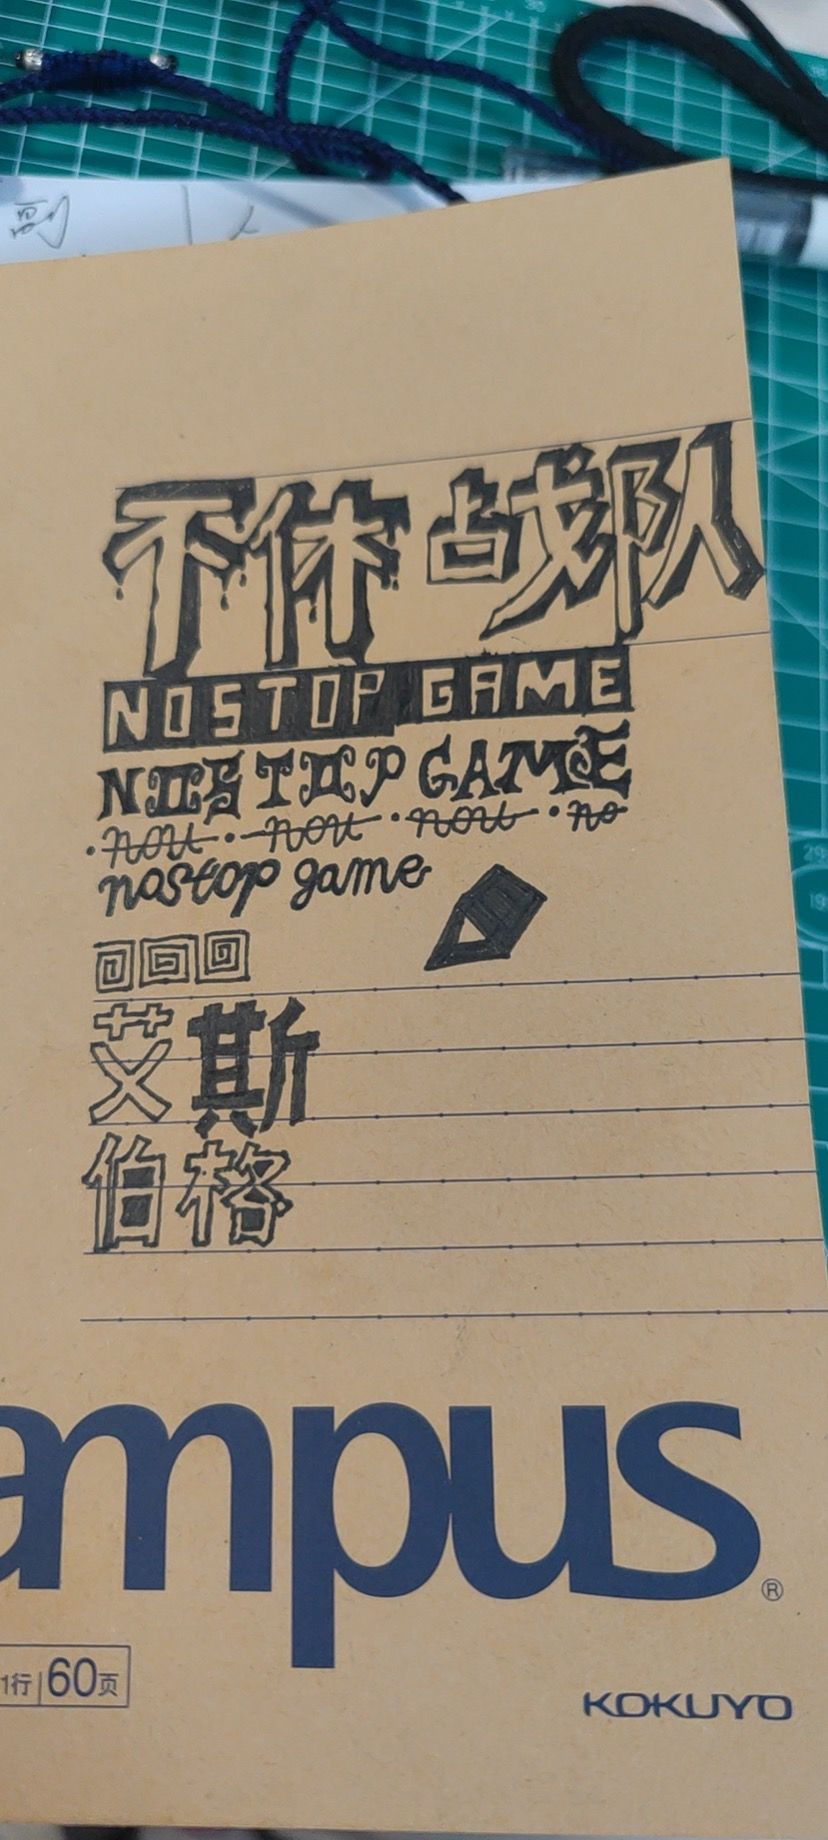 不休战队
NOSTOP GAME
NOSTOP GAME
nou nou nou no
nostop game
艾斯
伯格
ampus
®
1行 60页
KOKUYO